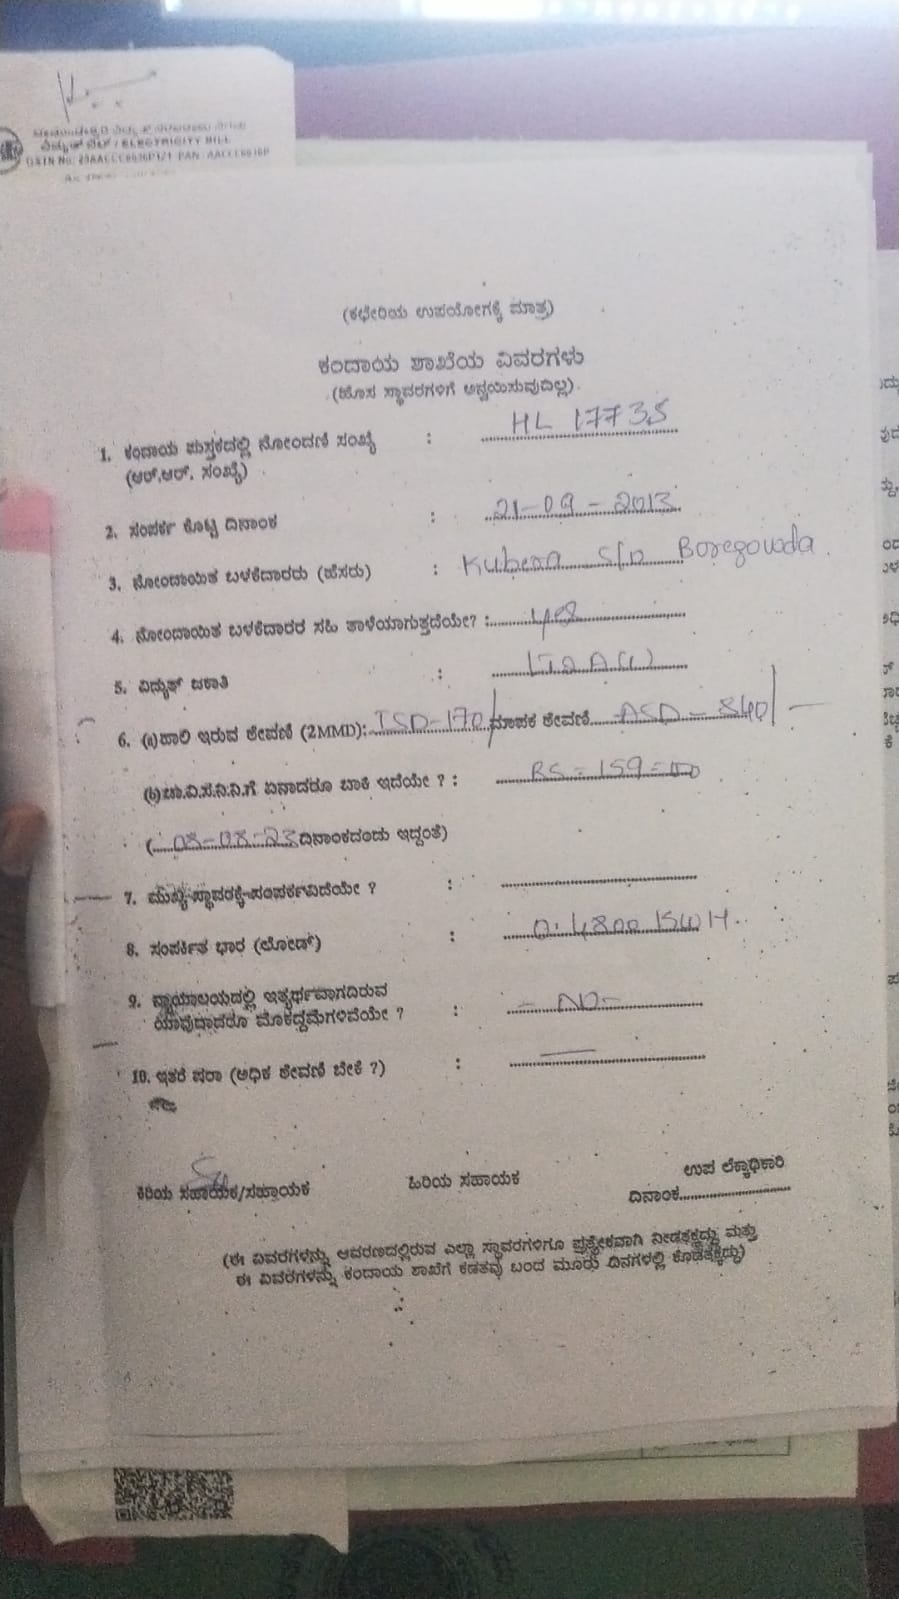 ವಿದ್ಯುತ್ ಬಿಲ್ / ELECTRICITY BILL
(ಕಛೇರಿಯ ಉಪಯೋಗಕ್ಕೆ ಮಾತ್ರ)
ಕಂದಾಯ ಶಾಖೆಯ ವಿವರಗಳು
(ಹೊಸ ಸ್ಥಾವರಗಳಿಗೆ ಅನ್ವಯಿಸುವುದಿಲ್ಲ).
1. ಕಂದಾಯ ಪುಸ್ತಕದಲ್ಲಿ ನೋಂದಣಿ ಸಂಖ್ಯೆ : HL 17735
(ಆರ್.ಆರ್. ಸಂಖ್ಯೆ)
2. ಸಂಪರ್ಕ ಕೊಟ್ಟ ದಿನಾಂಕ : 21-09-2013
3. ನೋಂದಾಯಿತ ಬಳಕೆದಾರರು (ಹೆಸರು) : Kubera S/O Boregowda
4. ನೋಂದಾಯಿತ ಬಳಕೆದಾರರ ಸಹಿ ತಾಳೆಯಾಗುತ್ತದೆಯೇ? : yes
5. ವಿದ್ಯುತ್ ಜಕಾತಿ : LT2A(1)
6. (a) ಹಾಲಿ ಇರುವ ಠೇವಣಿ (2MMD): ISD-170/ ಮಾಪಕ ಠೇವಣಿ ASD-840/-
(b) ಚಾ.ವಿ.ಸ.ನಿ.ನಿ.ಗೆ ಏನಾದರೂ ಬಾಕಿ ಇದೆಯೇ ? : RS=159=00
(08-08-23 ದಿನಾಂಕದಂದು ಇದ್ದಂತೆ)
7. ಮುಖ್ಯ ಸ್ಥಾವರಕ್ಕೆ ಸಂಪರ್ಕವಿದೆಯೇ ? :
8. ಸಂಪರ್ಕಿತ ಭಾರ (ಲೋಡ್) : 0.4800 KWH.
9. ನ್ಯಾಯಾಲಯದಲ್ಲಿ ಇತ್ಯರ್ಥವಾಗದಿರುವ
ಯಾವುದಾದರೂ ಮೊಕದ್ದಮೆಗಳಿವೆಯೇ ? : - NO -
10. ಇತರೆ ಷರಾ (ಅಧಿಕ ಠೇವಣಿ ಬೇಕೆ ?) : —
ಕಿರಿಯ ಸಹಾಯಕ/ಸಹಾಯಕ ಹಿರಿಯ ಸಹಾಯಕ ಉಪ ಲೆಕ್ಕಾಧಿಕಾರಿ
ದಿನಾಂಕ
(ಈ ವಿವರಗಳನ್ನು ಆವರಣದಲ್ಲಿರುವ ಎಲ್ಲಾ ಸ್ಥಾವರಗಳಿಗೂ ಪ್ರತ್ಯೇಕವಾಗಿ ನೀಡತಕ್ಕದ್ದು ಮತ್ತು
ಈ ವಿವರಗಳನ್ನು ಕಂದಾಯ ಶಾಖೆಗೆ ಕಡತವು ಬಂದ ಮೂರು ದಿನಗಳಲ್ಲಿ ಕೊಡತಕ್ಕದ್ದು)